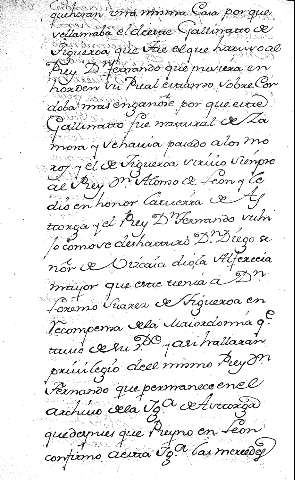 que eran una misma Casa por que
se llamaba el dicho Gallinatto de
figueroa que fue el que hauiso al
Rey Dⁿ fernando que pusiera en
horden su Real exticurso sobre Cor
doba mas enganose por que este
Gallinatto fue natural de Za
mora y se hauia pasado a los mo
ros y el de figueroa siruio siempre
al Rey Dⁿ Alonso de Leon y le
dio en honor la tierra de As
torga y el Rey Dⁿ Fernando su hi
jo como ve deshatturo Dⁿ Diego se
ñor de Vizcaia diola Alferecia
mayor que este tenia a Dⁿ
Loremo Suarez de figueroa en
recompensa de la Maiordomia qᵉ
tuuo de su Pᵉ y assi hallaran
priuilegio de el mismo Rey Dⁿ
Fernando que permanece en el
archiuo de la Ygᵃ de Asttorga
que despues que Reyno en Leon
confirmo a estta Ygᵃ las mercedes